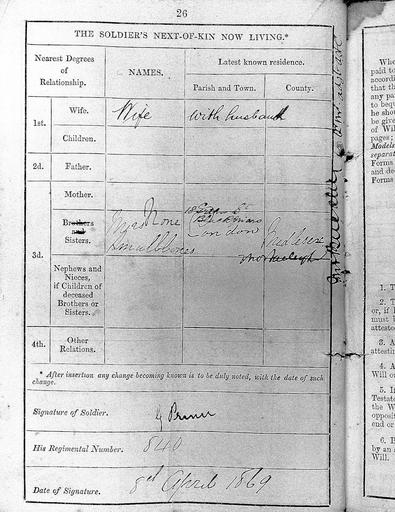 26
THE SOLDIER'S NEXT-OF-KIN NOW LIVING.*
Nearest Degrees of Relationship.
NAMES.
Latest known residence.
Parish and Town.
County.
1st.
Wife.
Wife
with husband
Children.
2d.
Father.
Mother.
3d.
Brothers and Sisters.
London
Middlesex
Nephews and Nieces, if Children of deceased Brothers or Sisters.
4th.
Other Relations.
* After insertion any change becoming known is to be duly noted, with the date of such
change.
Signature of Soldier.
His Regimental Number.
840
Date of Signature.
8th April 1869
Who
paid to
accordi
that th
any pa
to beq
he shou
be give
of Wil
pages;
Models
separat
Forms
and de
Forms
1. T
2. T
or, if
must b
atteste
3. A
attestin
4. A
Will ou
5. I
Testato
the W
opposit
end or
6. I
by an
Will.